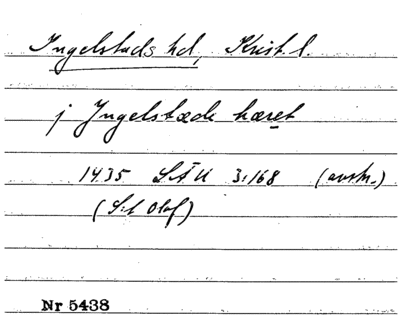 Ingelstads hd, Krist. l.
j Ingelstæde hæret
1435 SÄU 3:168 (avskr.)
(S:t Olof)
Nr 5438